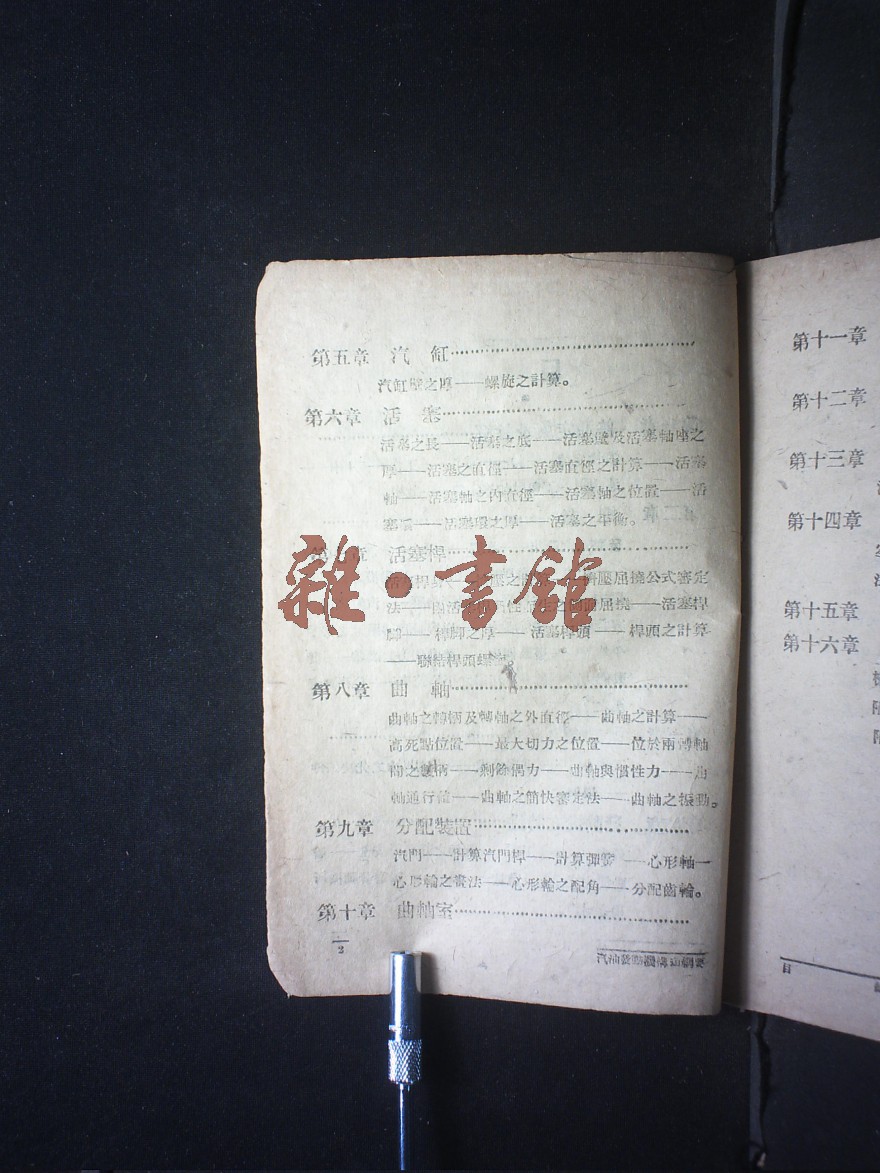 第五章 汽 缸
汽缸壁之厚——螺旋之計算。
第六章 活 塞
活塞之長——活塞之底——活塞壁及活塞軸座之
厚——活塞之直徑——活塞直徑之計算——活塞
軸——活塞軸之內直徑——活塞軸之位置——活
塞環——活塞環之厚——活塞之平衡。
活塞桿
壓屈撓公式審定
法——屈撓——活塞桿
脚——桿脚之厚——活塞桿頭——桿頭之計算
——聯結桿頭螺
第八章 曲 軸
曲軸之轉柄及轉軸之外直徑——曲軸之計算——
高死點位置——最大切力之位置——位於兩轉軸
間之雙柄——剩餘偶力——曲軸與慣性力——曲
軸通行——曲軸之簡快審定法——曲軸之振動。
第九章 分配裝置
汽門——計算汽門桿——計算彈簧——心形軸—
心形輪之畫法——心形輪之配角——分配齒輪。
第十章 曲軸室
2
汽油發動機構造綱要
雜·書館
第十一章
第十二章
第十三章
第十四章
第十五章
第十六章
目